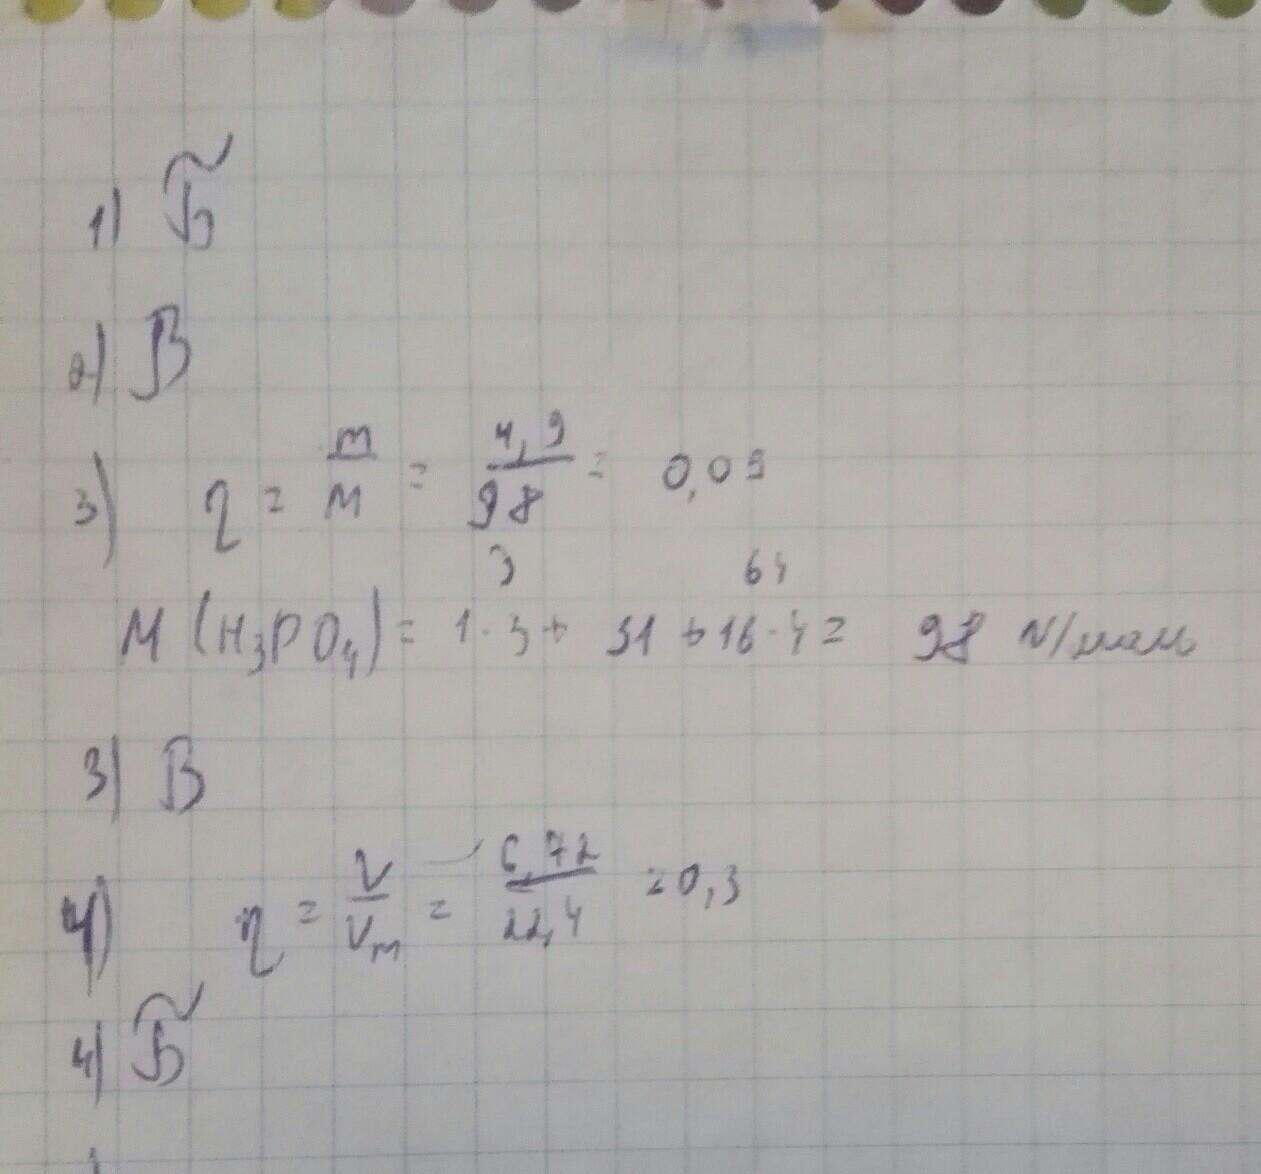 1) Б
2) В
3) η = m/M = 4,9/98 = 0,05
3 64
M (H₃PO₄) = 1·3 + 31 + 16·4 = 98 г/моль
3) В
4) η = V/Vm = 6,72/22,4 = 0,3
4) Б